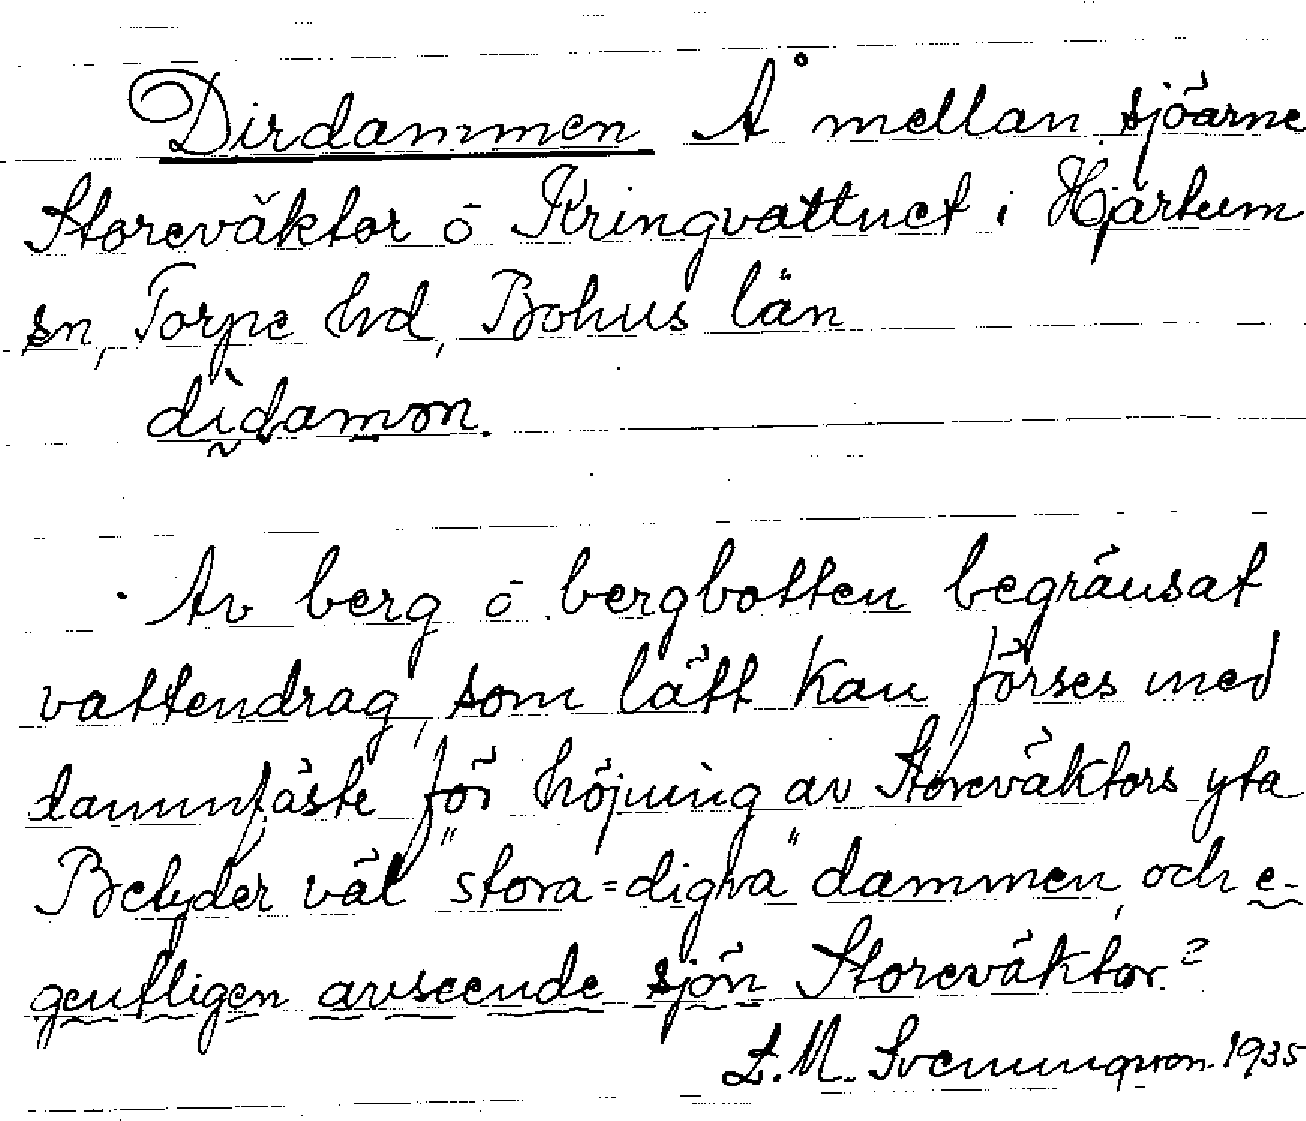 Dirdammen Å mellan sjöarne
Storeväktor o Kringvattnet i Hjärtum
sn, Torpe hd, Bohus län
dìdamon.
Av berg o bergbotten begränsat
vattendrag, som lätt kan förses med
dammfäste för höjning av Storeväktors yta
Betyder väl "stora=digra" dammen, och e-
gentligen avseende sjön Storeväktor.?
E.M. Svenningsson 1935